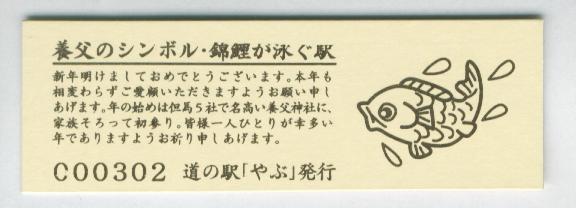 養父のシンボル・錦鯉が泳ぐ駅
新年明けましておめでとうございます。本年も
相変わらずご愛顧いただきますようお願い申し
あげます。年の始めは但馬5社で名高い養父神社に、
家族そろって初参り。皆様一人ひとりが幸多い
年でありますようお祈り申しあげます。
C00302 道の駅「やぶ」発行